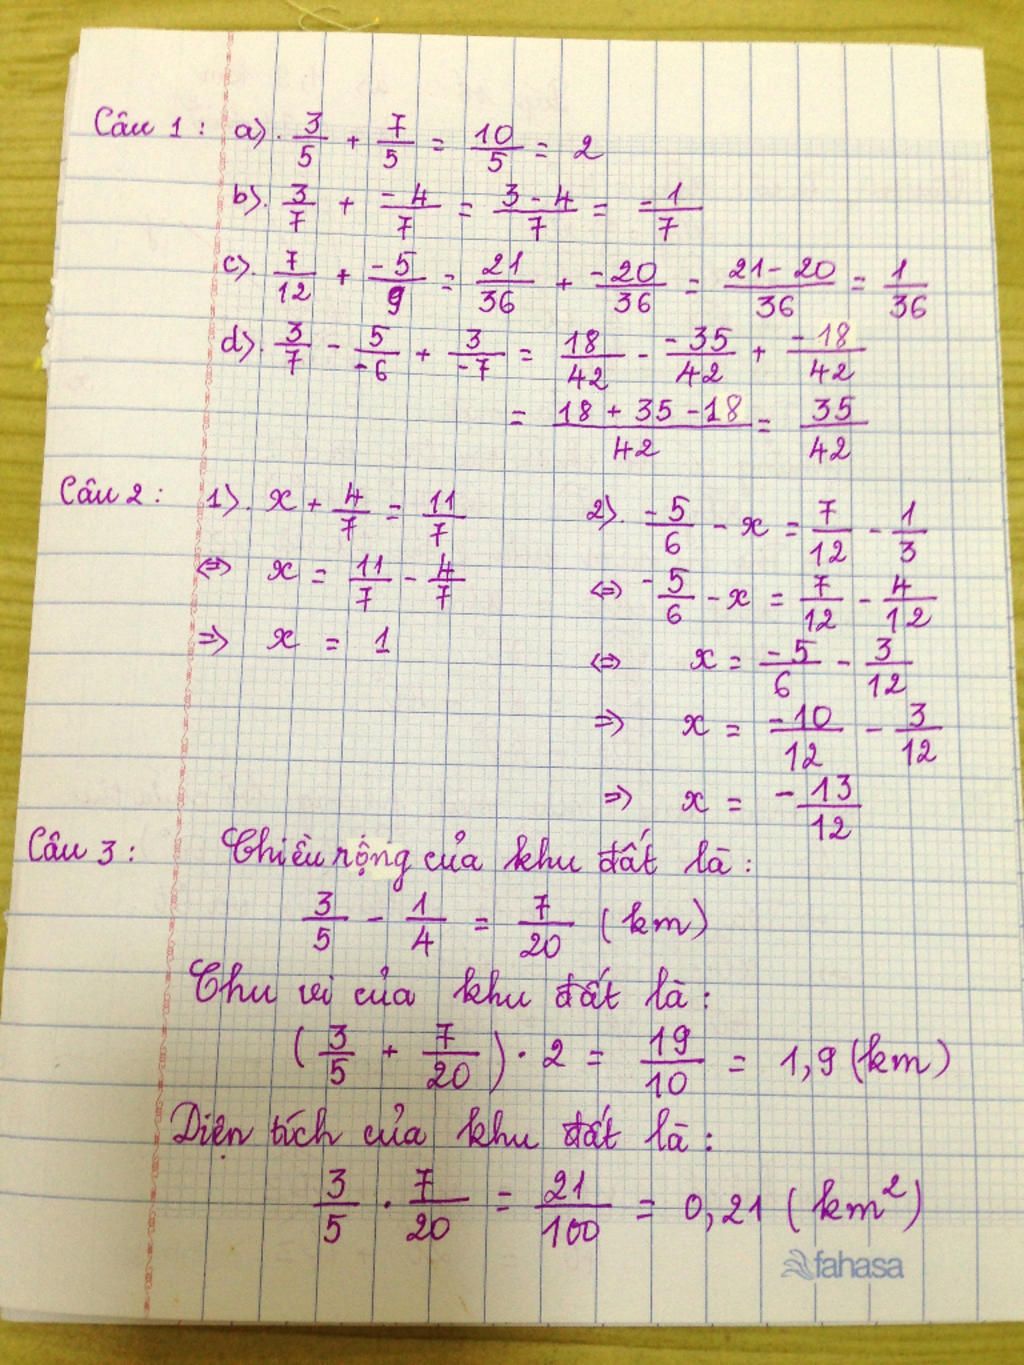 Câu 1 : a). 3/5 + 7/5 = 10/5 = 2
b). 3/7 + -4/7 = 3-4/7 = -1/7
c). 7/12 + -5/9 = 21/36 + -20/36 = 21-20/36 = 1/36
d). 3/7 - 5/-6 + 3/-7 = 18/42 - -35/42 + -18/42
= 18 + 35 - 18/42 = 35/42
Câu 2 : 1). x + 4/7 = 11/7
⇔ x = 11/7 - 4/7
⇒ x = 1
2). -5/6 - x = 7/12 - 1/3
⇔ -5/6 - x = 7/12 - 4/12
⇔ x = -5/6 - 3/12
⇒ x = -10/12 - 3/12
⇒ x = -13/12
Câu 3 : Chiều rộng của khu đất là :
3/5 - 1/4 = 7/20 (km)
Chu vi của khu đất là :
(3/5 + 7/20) . 2 = 19/10 = 1,9 (km)
Diện tích của khu đất là :
3/5 . 7/20 = 21/100 = 0,21 (km²)
fahasa